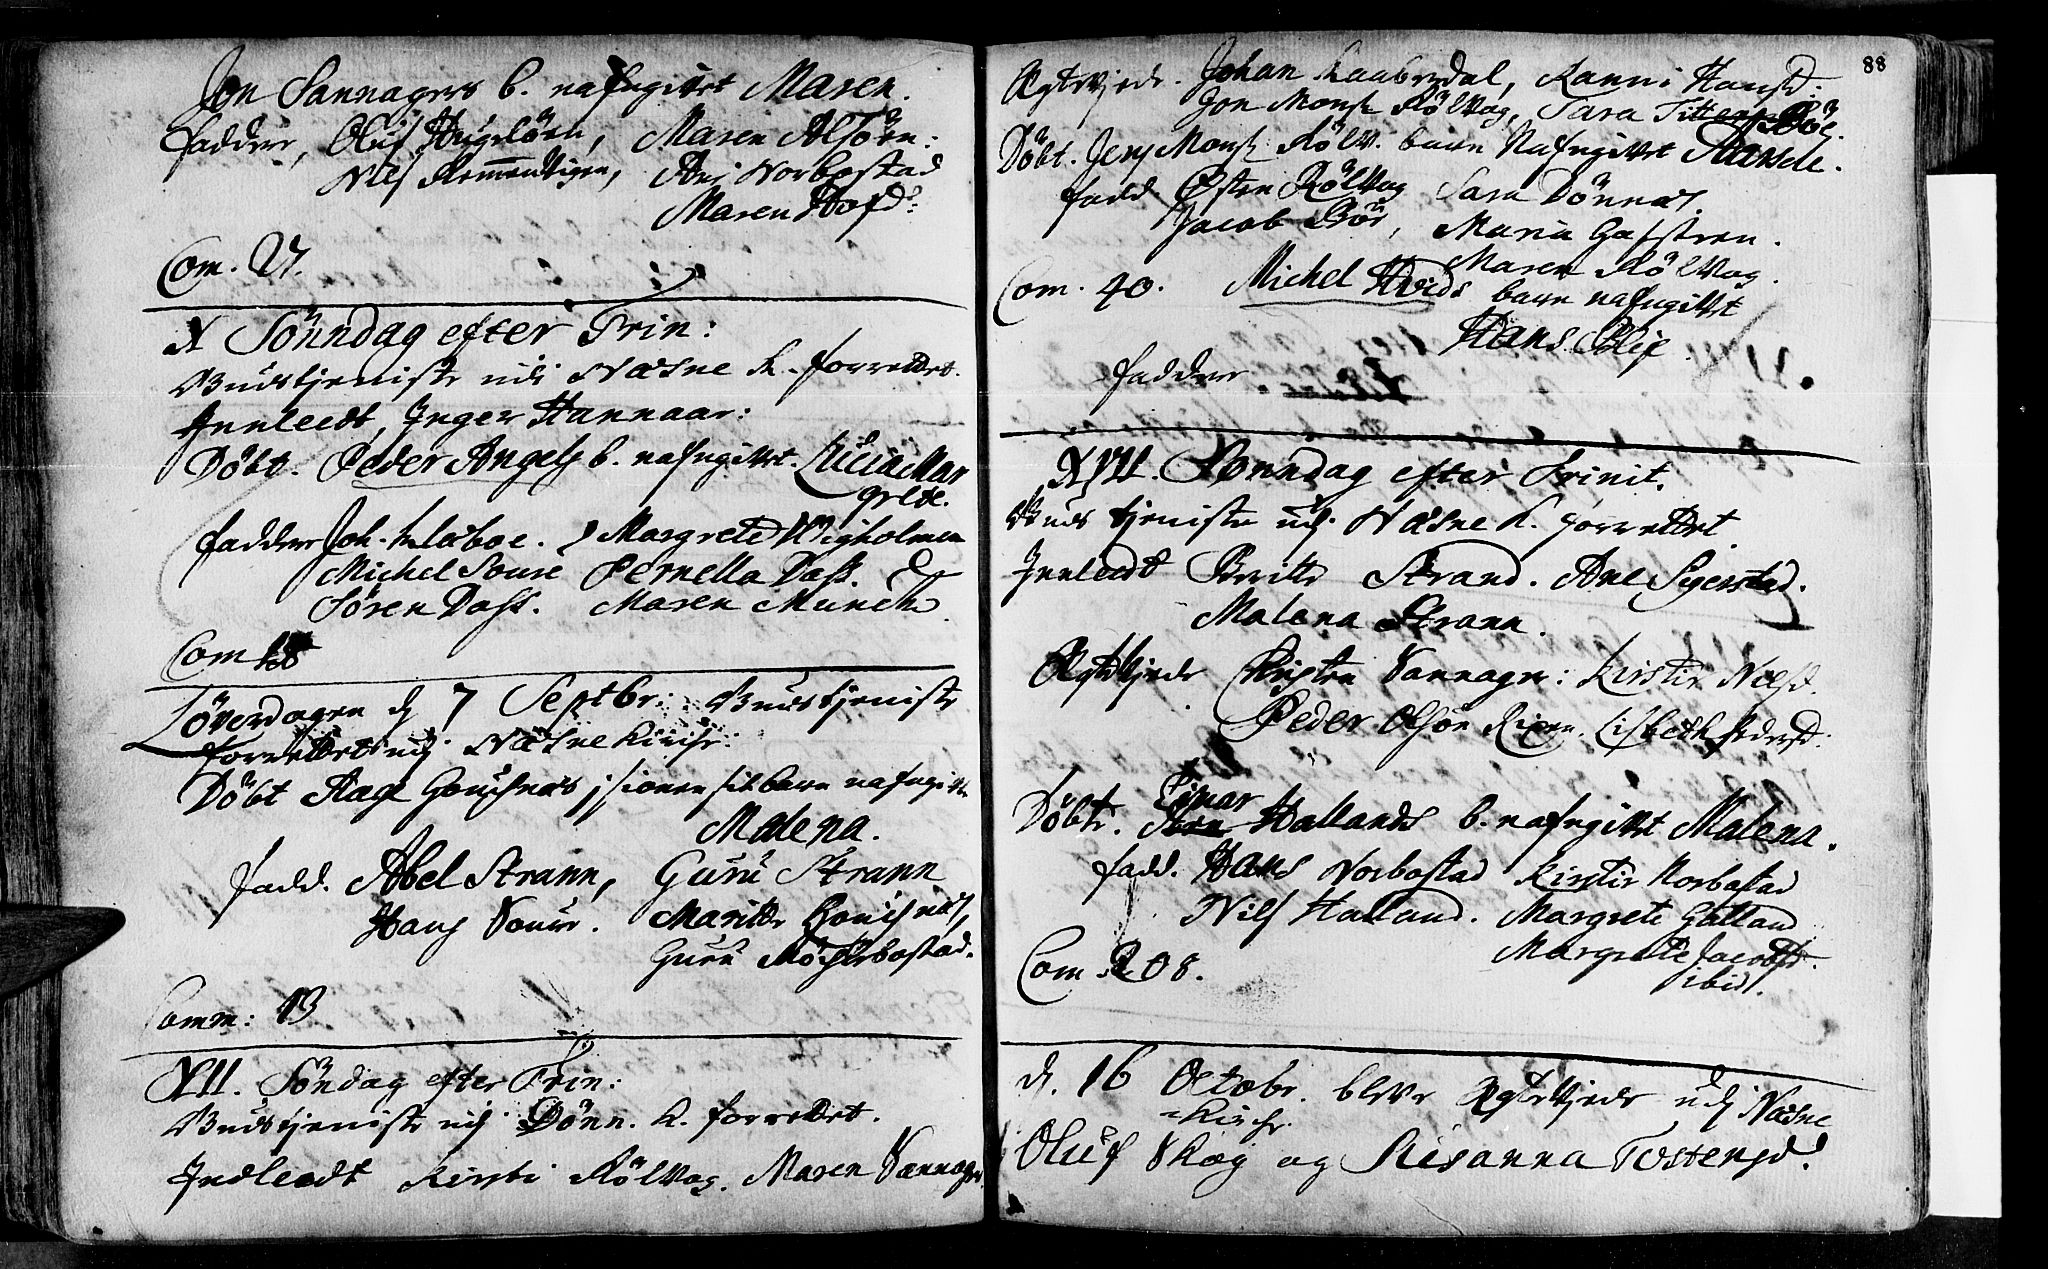 Jon Sannagers b. nafngivet Maren.
faddere, Oluf Hugeløen, Maren Alsøen:
Nils Remmentigen, Ane Norbostad
Maren Hofd:
Com. 27.
X Sønndag efter Trin:
Gudstjeniste udi Næsne K. forrettet.
Innleedt, Inger Hannaar:
Døbt. Peder Angels b. nafngivet. Lucia Mar
grete.
faddere Joh. Klæboe. Margrete Wigholmen
Michel Soure Pernella Dass.
Søren Dass. Maren Munch
Com 18
Løverdagen d 7 Septbr: Gudstjeniste
forrettet udj Næsne Kirche:
Døbt Aage sit barn nafngivet
Malena.
fadd. Abel Strann, Guru Strann
Hans Maritte
Guru Røchtbostad.
Comm: 13
XII. Søndag efter Trin:
Gudstjeniste udj Dønn. K. forrettet.
Indleedt Kirsti Rølvog. Maren Sannager
88
Egteviede. Johan Raabredal, Ranni Hansd.
Jon Monsk Rølvog, Sara Tittens Bøe.
Døbt. Jens Monsk Rølv. barn Nafngivet
fadd Østen Rølvog Sara Dønnes.
Jacob Bøe, Maria Gafstren.
Maren Rølvog.
Com. 40. Michel Hveds barn nafngivet
Hans Blix
faddere
XVII. Sonndag efter Trinit.
Gudstjeniste udj Næsne K. forrettet
Innleedt Britte Strand. Ane Sgerstad.
Malena Strann.
Egteviede Christen Sannager: Kirstie Nilsd.
Peder Olsøn Lisbeth Pedersd.
Døbt. Einar Hallands b. nafngivet Malena.
fadd. Hans Norbostad Kirstie Norbostad
Nils Halland. Margrete Halland
Margrete Jacobsd.
ibid.
Com 208.
d. 16 Octobr. bleve Egteviede udj Næsne
Kirche.
Oluf Skog og Susanna Tostensd.